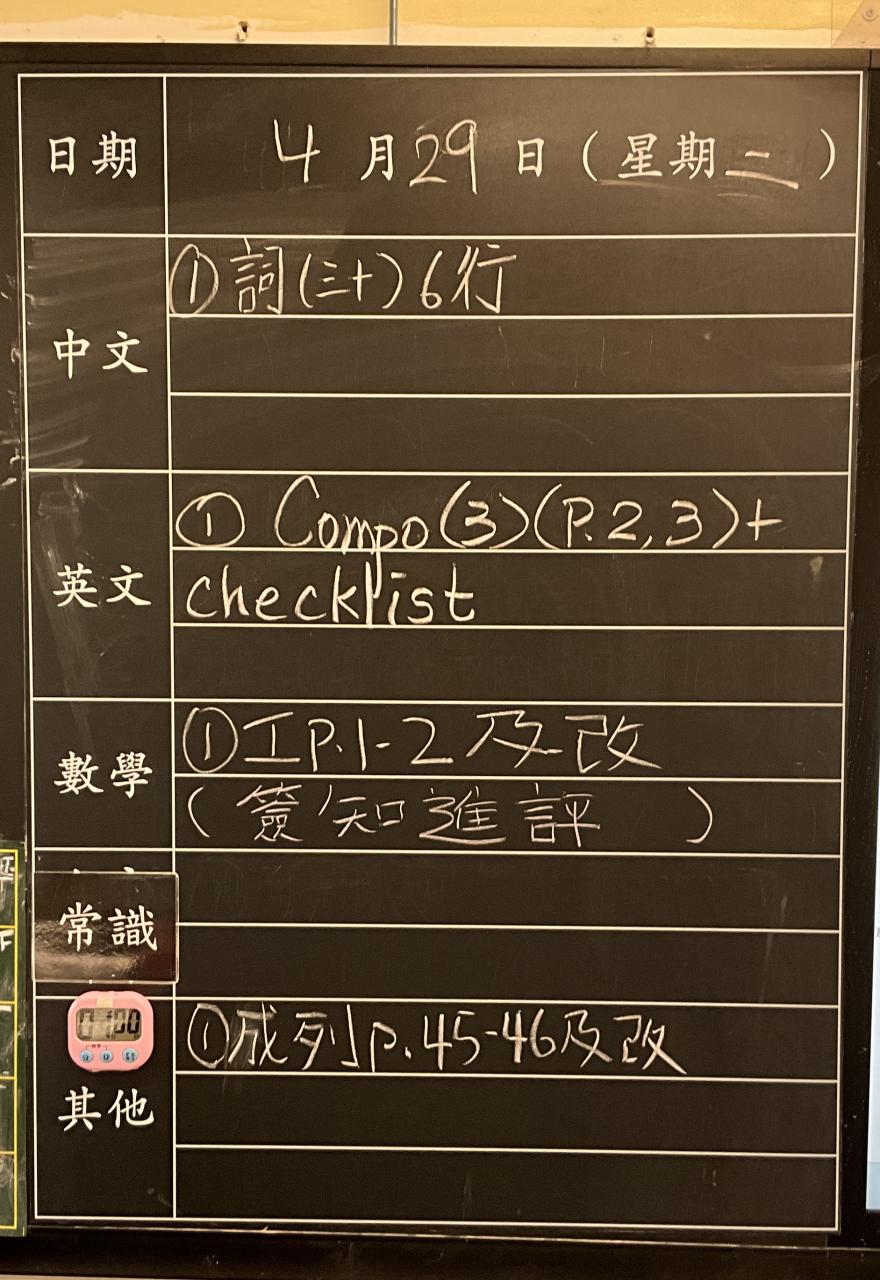 日期 4月29日(星期二)
中文
①詞(三十)6行
英文
① Compo(3)(P.2,3)+
checklist
數學
①工P.1-2及改
(簽知進評 )
常識
其他
①成列p.45-46及改